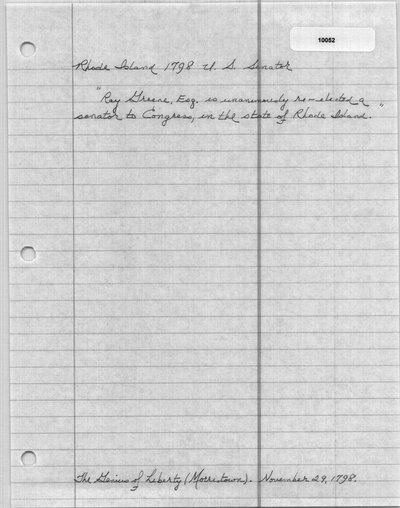 10052
Rhode Island 1798 U. S. Senator
"Ray Greene, Esq. is unanimously re-elected a
senator to Congress, in the state of Rhode Island."
The Genius of Liberty (Morristown). November 29, 1798.